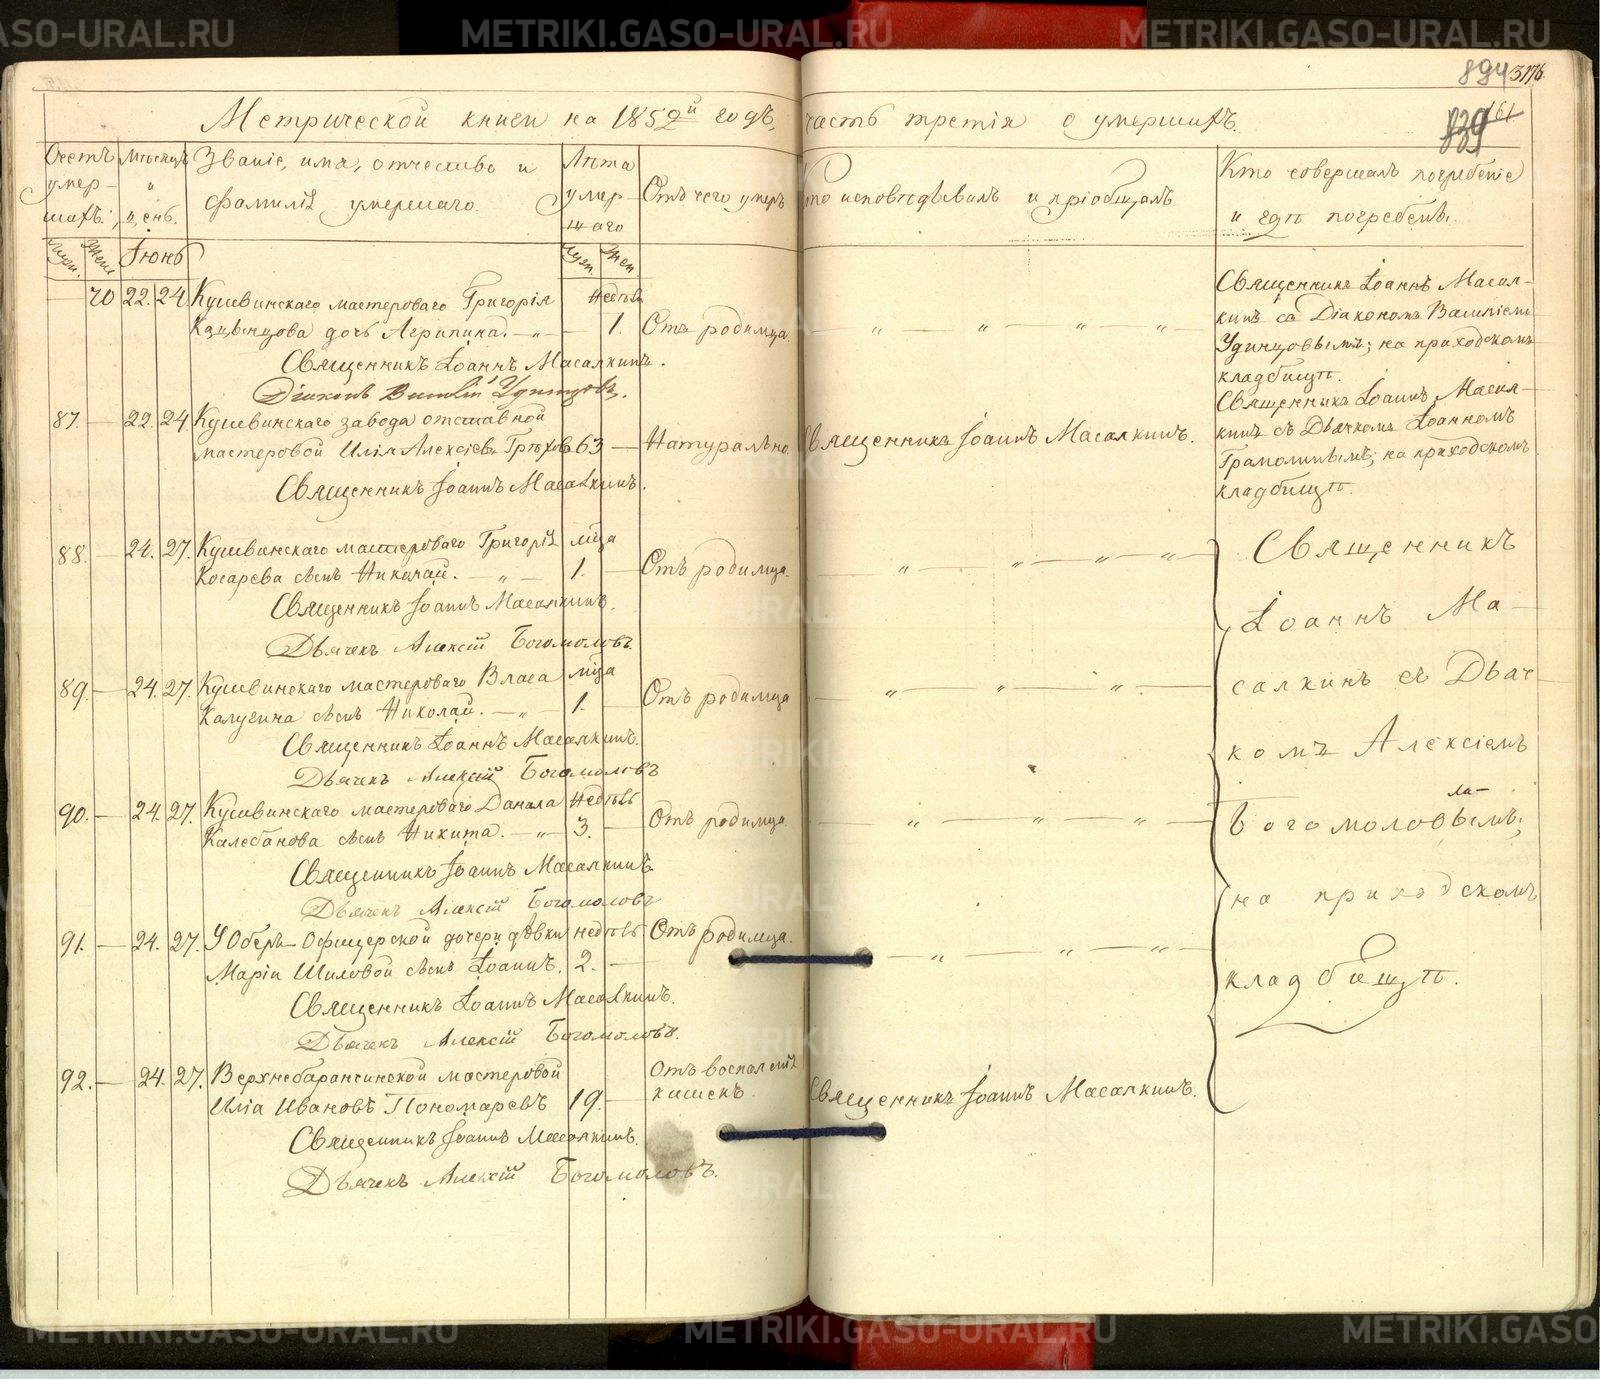 METRIKI.GASO-URAL.RU
894 3176
Метрической книги на 1852й годъ, часть третія о умершихъ.
839 161
Счетъ умер-шихъ.
Мѣсяцъ и день.
Званіе, имя, отчество и фамилія умершаго.
Лѣта умер-шаго
Отъ чего умеръ
Кто исповѣдывалъ и пріобщалъ
Кто совершалъ погребеніе и гдѣ погребены.
Муж. Жен. Іюнь Муж. Жен.
70 22. 24. Кушвинскаго мастероваго Григорія недѣль
дочь Агрипина. — „ — 1. Отъ родимца. — „ „ — „ — „ —
Священникъ Іоаннъ Масалкинъ.
Діаконъ Василій Удинцовъ.
Священникъ Іоаннъ Масал-
кинъ съ Діакономъ Василіемъ
Удинцовымъ; на приходскомъ
кладбищѣ.
87. — 22. 24. Кушвинскаго завода отставной
мастеровой Илія Алексіевъ Грѣховъ 63 — Натурально. Священникъ Іоаннъ Масалкинъ.
Священникъ Іоаннъ Масалкинъ.
Священникъ Іоаннъ Масал-
кинъ съ Дьячкомъ Іоанномъ
Грамолинымъ; на приходскомъ
кладбищѣ.
88. — 24. 27. Кушвинскаго мастероваго Григорія мца
Косарева сынъ Николай. — „ — 1. — Отъ родимца. — „ — „ — „ — „ —
Священникъ Іоаннъ Масалкинъ.
Дьячекъ Алексій Богомоловъ.
89. — 24. 27. Кушвинскаго мастероваго Власа мца
Калугина сынъ Николай. — „ — 1. — Отъ родимца — „ — „ — „ —
Священникъ Іоаннъ Масалкинъ.
Дьячекъ Алексій Богомоловъ
90. — 24. 27. Кушвинскаго мастероваго Данила недѣль
сынъ Никита. — „ — 3. — Отъ родимца — „ — „ — „ —
Священникъ Іоаннъ Масалкинъ.
Дьячекъ Алексій Богомоловъ
91. — 24. 27. У Оберъ-Офицерской дочери дѣвки недѣль Отъ родимца.
Маріи Шиловой сынъ Іоаннъ. 2. — — „ — „ — „ —
Священникъ Іоаннъ Масалкинъ.
Дьячекъ Алексій Богомоловъ.
92. — 24. 27. Верхнебаранчинской мастеровой Отъ воспаленія
Илія Ивановъ Пономаревъ 19. — кишекъ. Священникъ Іоаннъ Масалкинъ.
Священникъ Іоаннъ Масалкинъ.
Дьячекъ Алексій Богомоловъ.
Священникъ
Іоаннъ Ма-
салкинъ съ Дьяч-
комъ Алексіемъ
ла-
Богомоловымъ;
на приходскомъ
кладбищѣ.